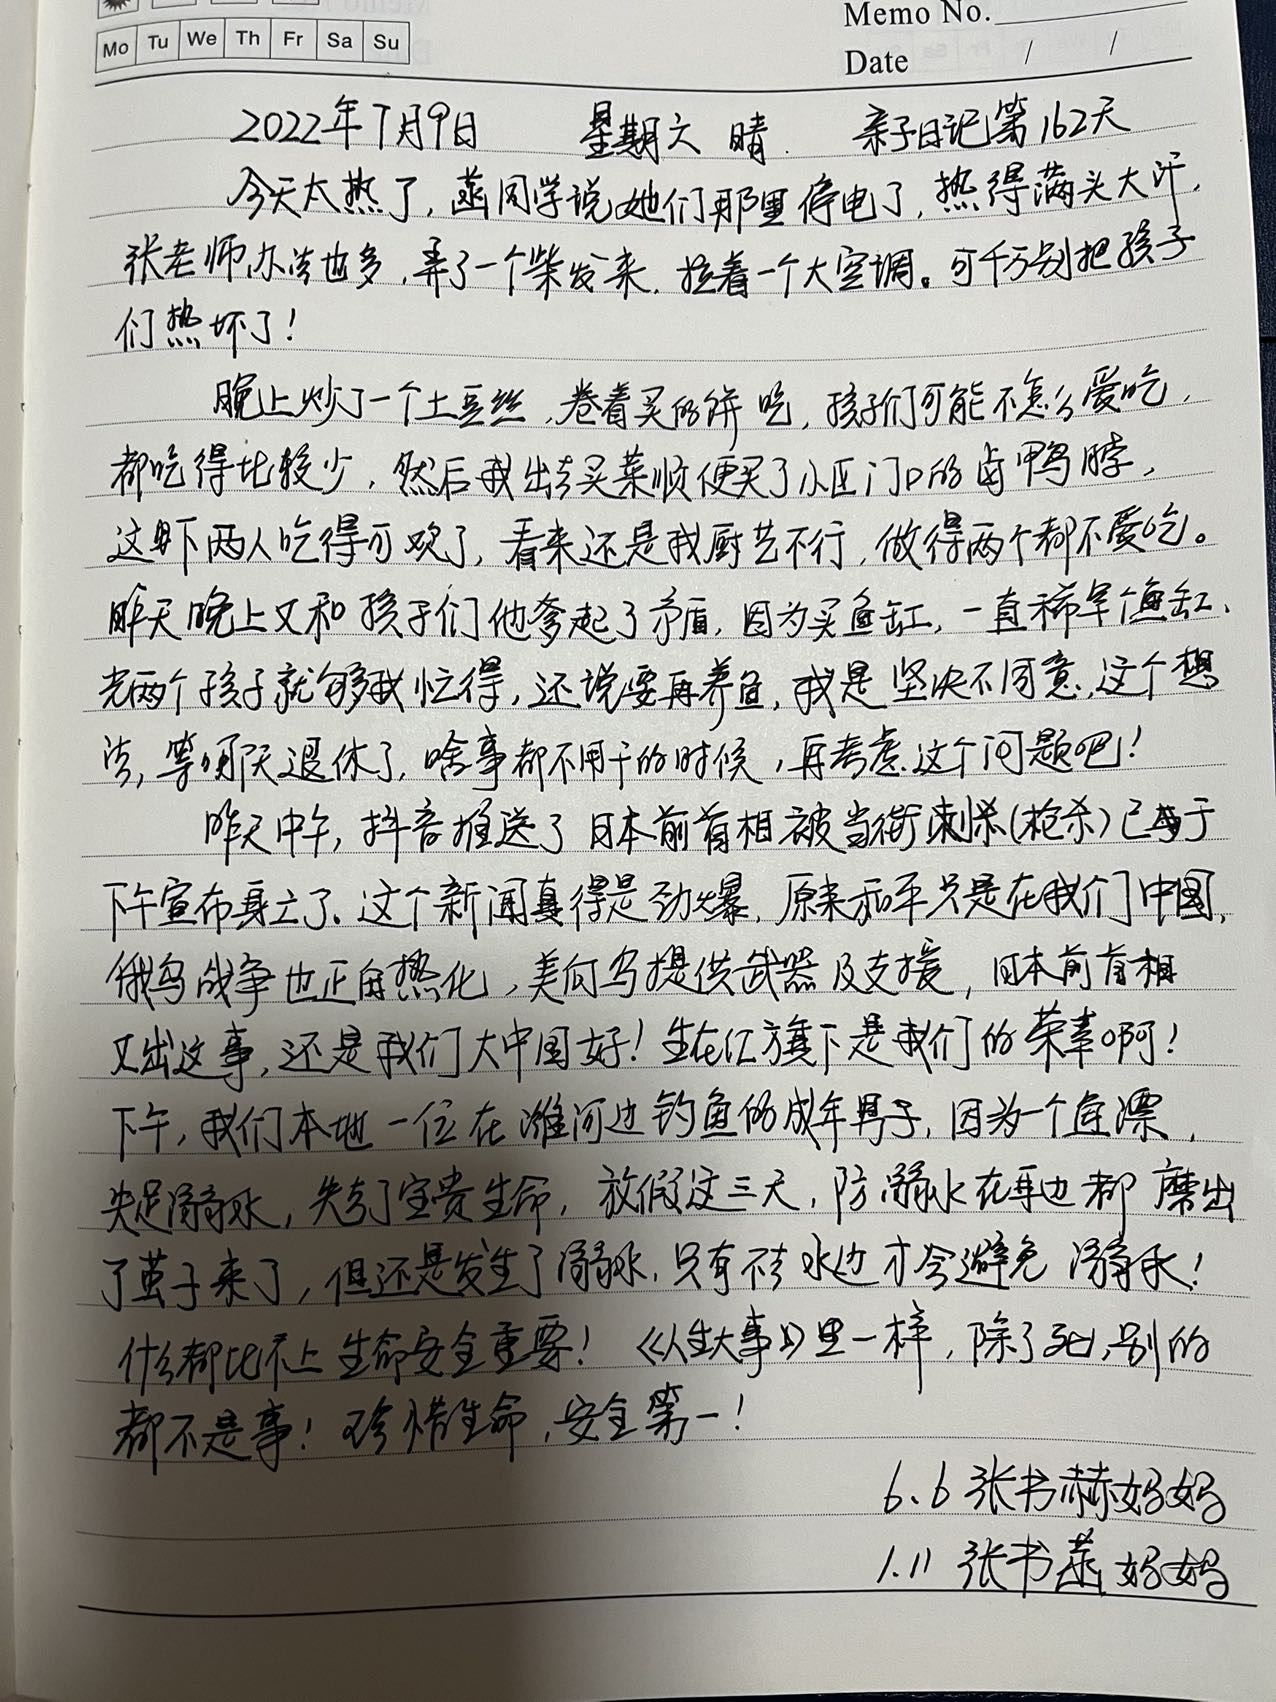 Mo Tu We Th Fr Sa Su
Memo No.
Date / /
2022年7月9日 星期六 晴. 亲子日记第162天
今天太热了,菡同学说她们那里停电了,热得满头大汗,
张老师办法也多,弄了一个柴发来,拉着一个大空调。可千万别把孩子
们热坏了!
晚上炒了一个土豆丝,卷着买的饼吃,孩子们可能不怎么爱吃,
都吃得比较少,然后我出去买菜顺便买了小区门口的卤鸭脖,
这下两人吃得可欢了,看来还是我厨艺不行,做得两个都不爱吃。
昨天晚上又和孩子们他爹起了矛盾,因为买鱼缸,一直稀罕个鱼缸、
光两个孩子就够我忙得,还说要再养鱼,我是坚决不同意,这个想
法,等哪天退休了,啥事都不用干的时候,再考虑这个问题吧!
昨天中午,抖音推送了日本前首相被当街刺杀(枪杀)已于
下午宣布身亡了、这个新闻真得是劲爆,原来和平只是在我们中国,
俄乌战争也正白热化,美向乌提供武器及支援,日本前首相
又出这事,还是我们大中国好!生在红旗下是我们的荣幸啊!
下午,我们本地一位在潍河边钓鱼的成年男子,因为一个鱼漂,
失足溺水,失去了宝贵生命,放假这三天,防溺水在耳边都磨出
了茧子来了,但还是发生了溺水,只有不去水边才会避免溺水!
什么都比不上生命安全重要!《人生大事》里一样,除了死,别的
都不是事!珍惜生命,安全第一!
6.6 张书赫妈妈
1.11 张书菡妈妈